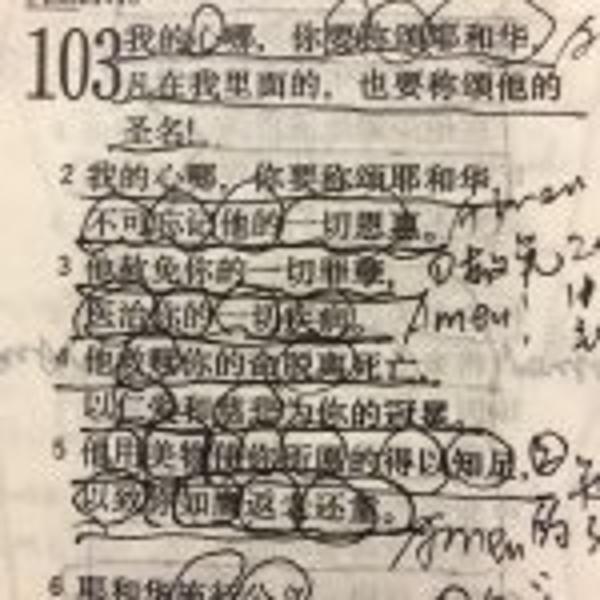 103 我的心哪，你要称颂耶和华，
凡在我里面的，也要称颂他的
圣名！
2 我的心哪，你要称颂耶和华，
不可忘记他的一切恩惠。 Amen
3 他赦免你的一切罪孽， ①赦免
医治你的一切疾病。 Amen!
4 他救赎你的命脱离死亡，
以仁爱和慈悲为你的冠冕。
5 他用美物使你所愿的得以知足， ②
以致你如鹰返老还童。 Amen 的
6 耶和华施行公义